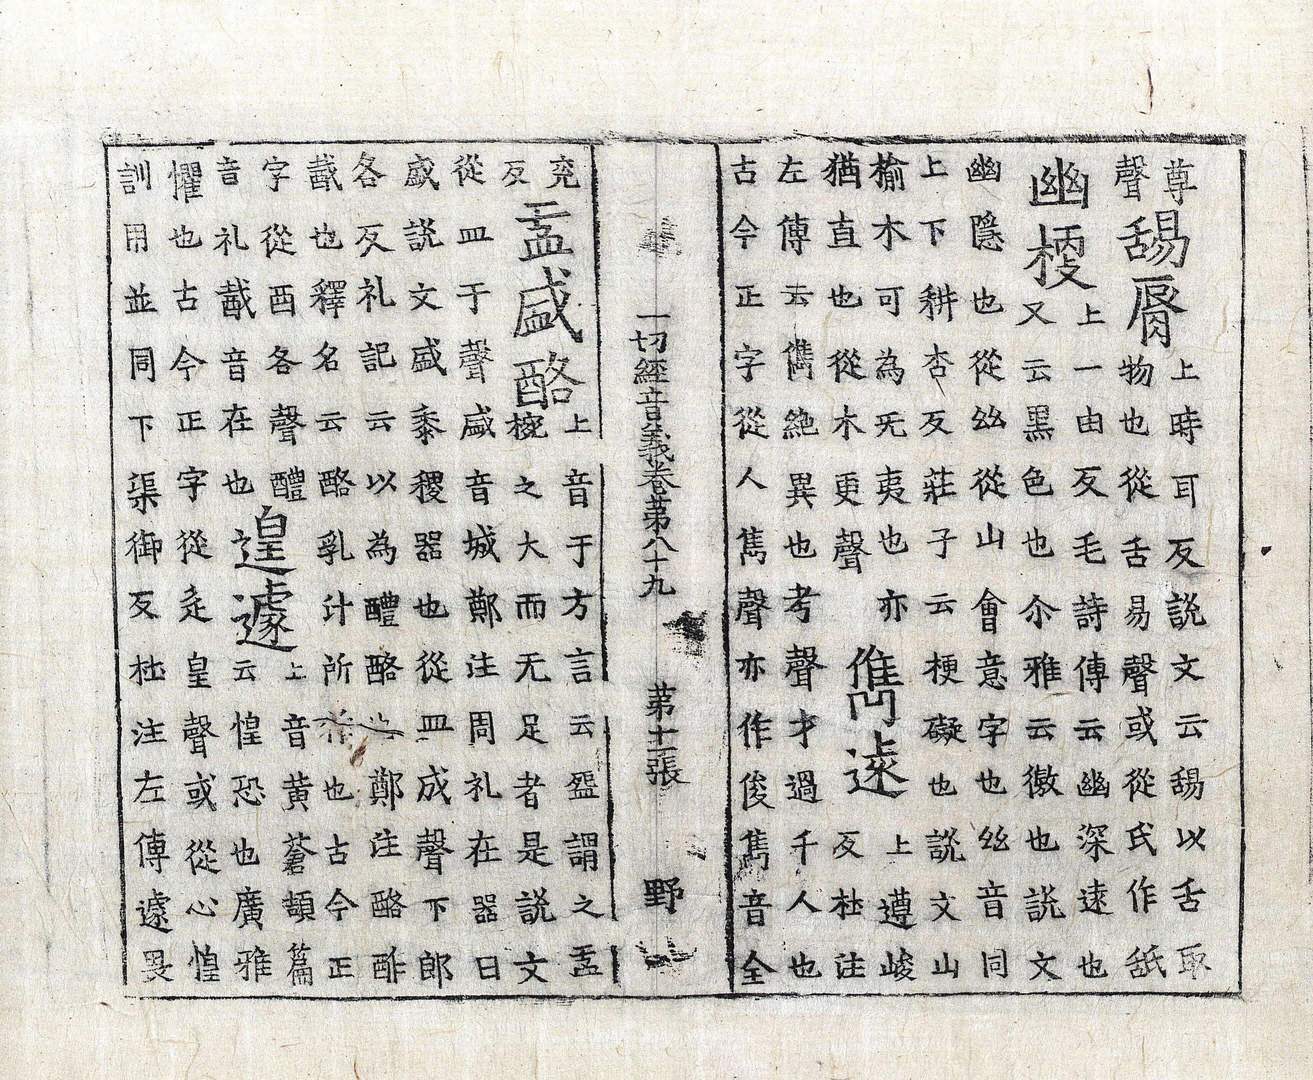 尊聲舓脣上時耳反說文云舓以舌取
物也從舌易聲或從氏作舐
幽梗上一由反毛詩傳云幽深遠也
又云黑色也尒雅云微也說文
幽隱也從𢆶從山會意字也𢆶音同
上下耕杏反莊子云梗礙也說文山
榆木可為旡夷也亦
猶直也從木更聲
儁遠上遵峻
反杜注
左傳云儁絶異也考聲才過千人也
古今正字從人雋聲亦作俊雋音全
一切經音義卷第八十九 第十一張 野
兖反盂盛酪上音于方言云盌謂之盂
椀之大而无足者是說文
從皿于聲盛音城鄭注周礼在器曰
盛說文盛黍稷器也從皿成聲下郎
各反礼記云以為醴酪鄭注酪酢
䣧也釋名云酪乳汁所也古今正
字從酉各聲醴
音礼䣧音在也
遑遽上音黃蒼頡篇
云惶恐也廣雅
懼也古今正字從辵皇聲或從心惶
訓用並同下渠御反杜注左傳遽畏